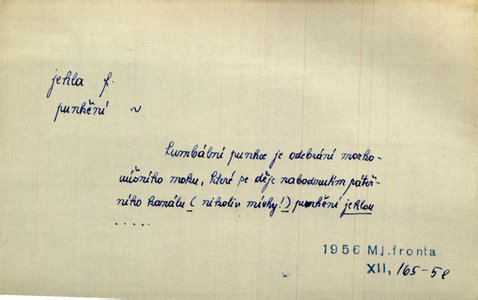 jehla f.
punkční ~
Lumbální punkce je odebrání mozko-
míšního moku, které se děje nabodnutím páteř-
ního kanálu (nikoliv míchy!) punkční jehlou
.....
1956 Ml.fronta
XII, 165-5e